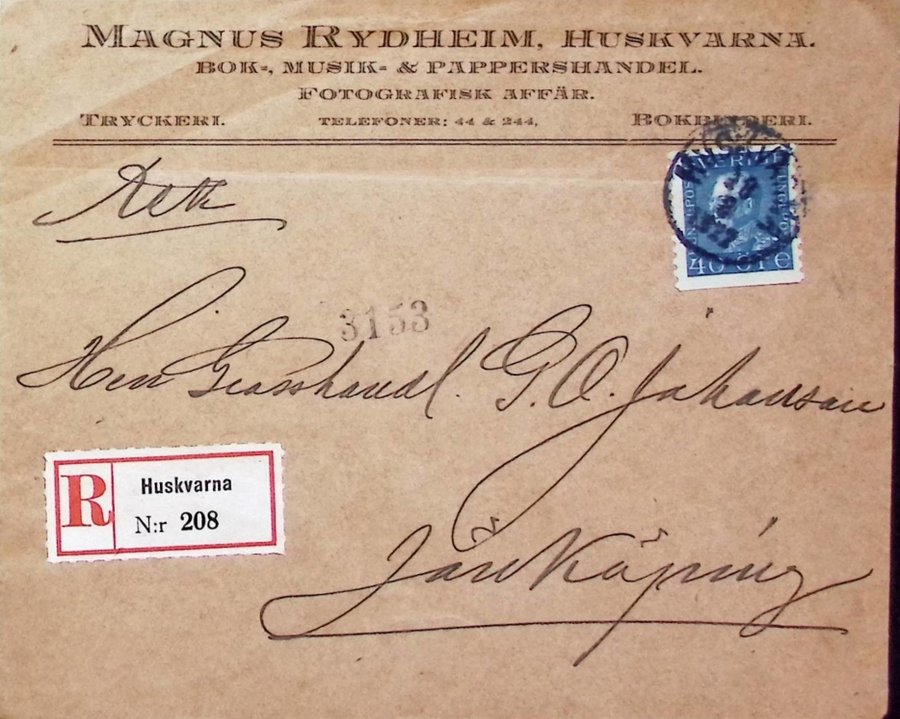 MAGNUS RYDHEIM, HUSKVARNA.
BOK-, MUSIK- & PAPPERSHANDEL.
FOTOGRAFISK AFFÄR.
TRYCKERI. TELEFONER: 44 & 244, BOKBINDERI.
SVERIGE
40 ÖRE
Rek
3153
Herr Grosshandl. G. O. Johansson
R Huskvarna
N:r 208
Jönköping